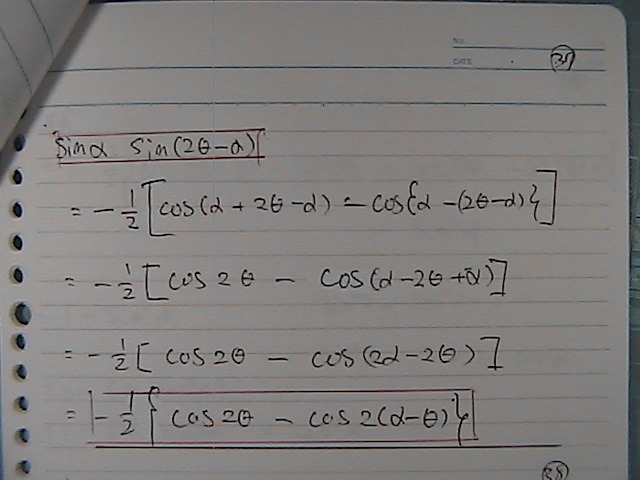 No.
DATE
37
sinα sin(2θ-α)
= -1/2 [cos(α + 2θ-α) - cos{α -(2θ-α)}]
= -1/2 [cos 2θ - cos(α-2θ+α)]
= -1/2 [cos2θ - cos(2α-2θ)]
= -1/2 {cos 2θ - cos 2(α-θ)}
38